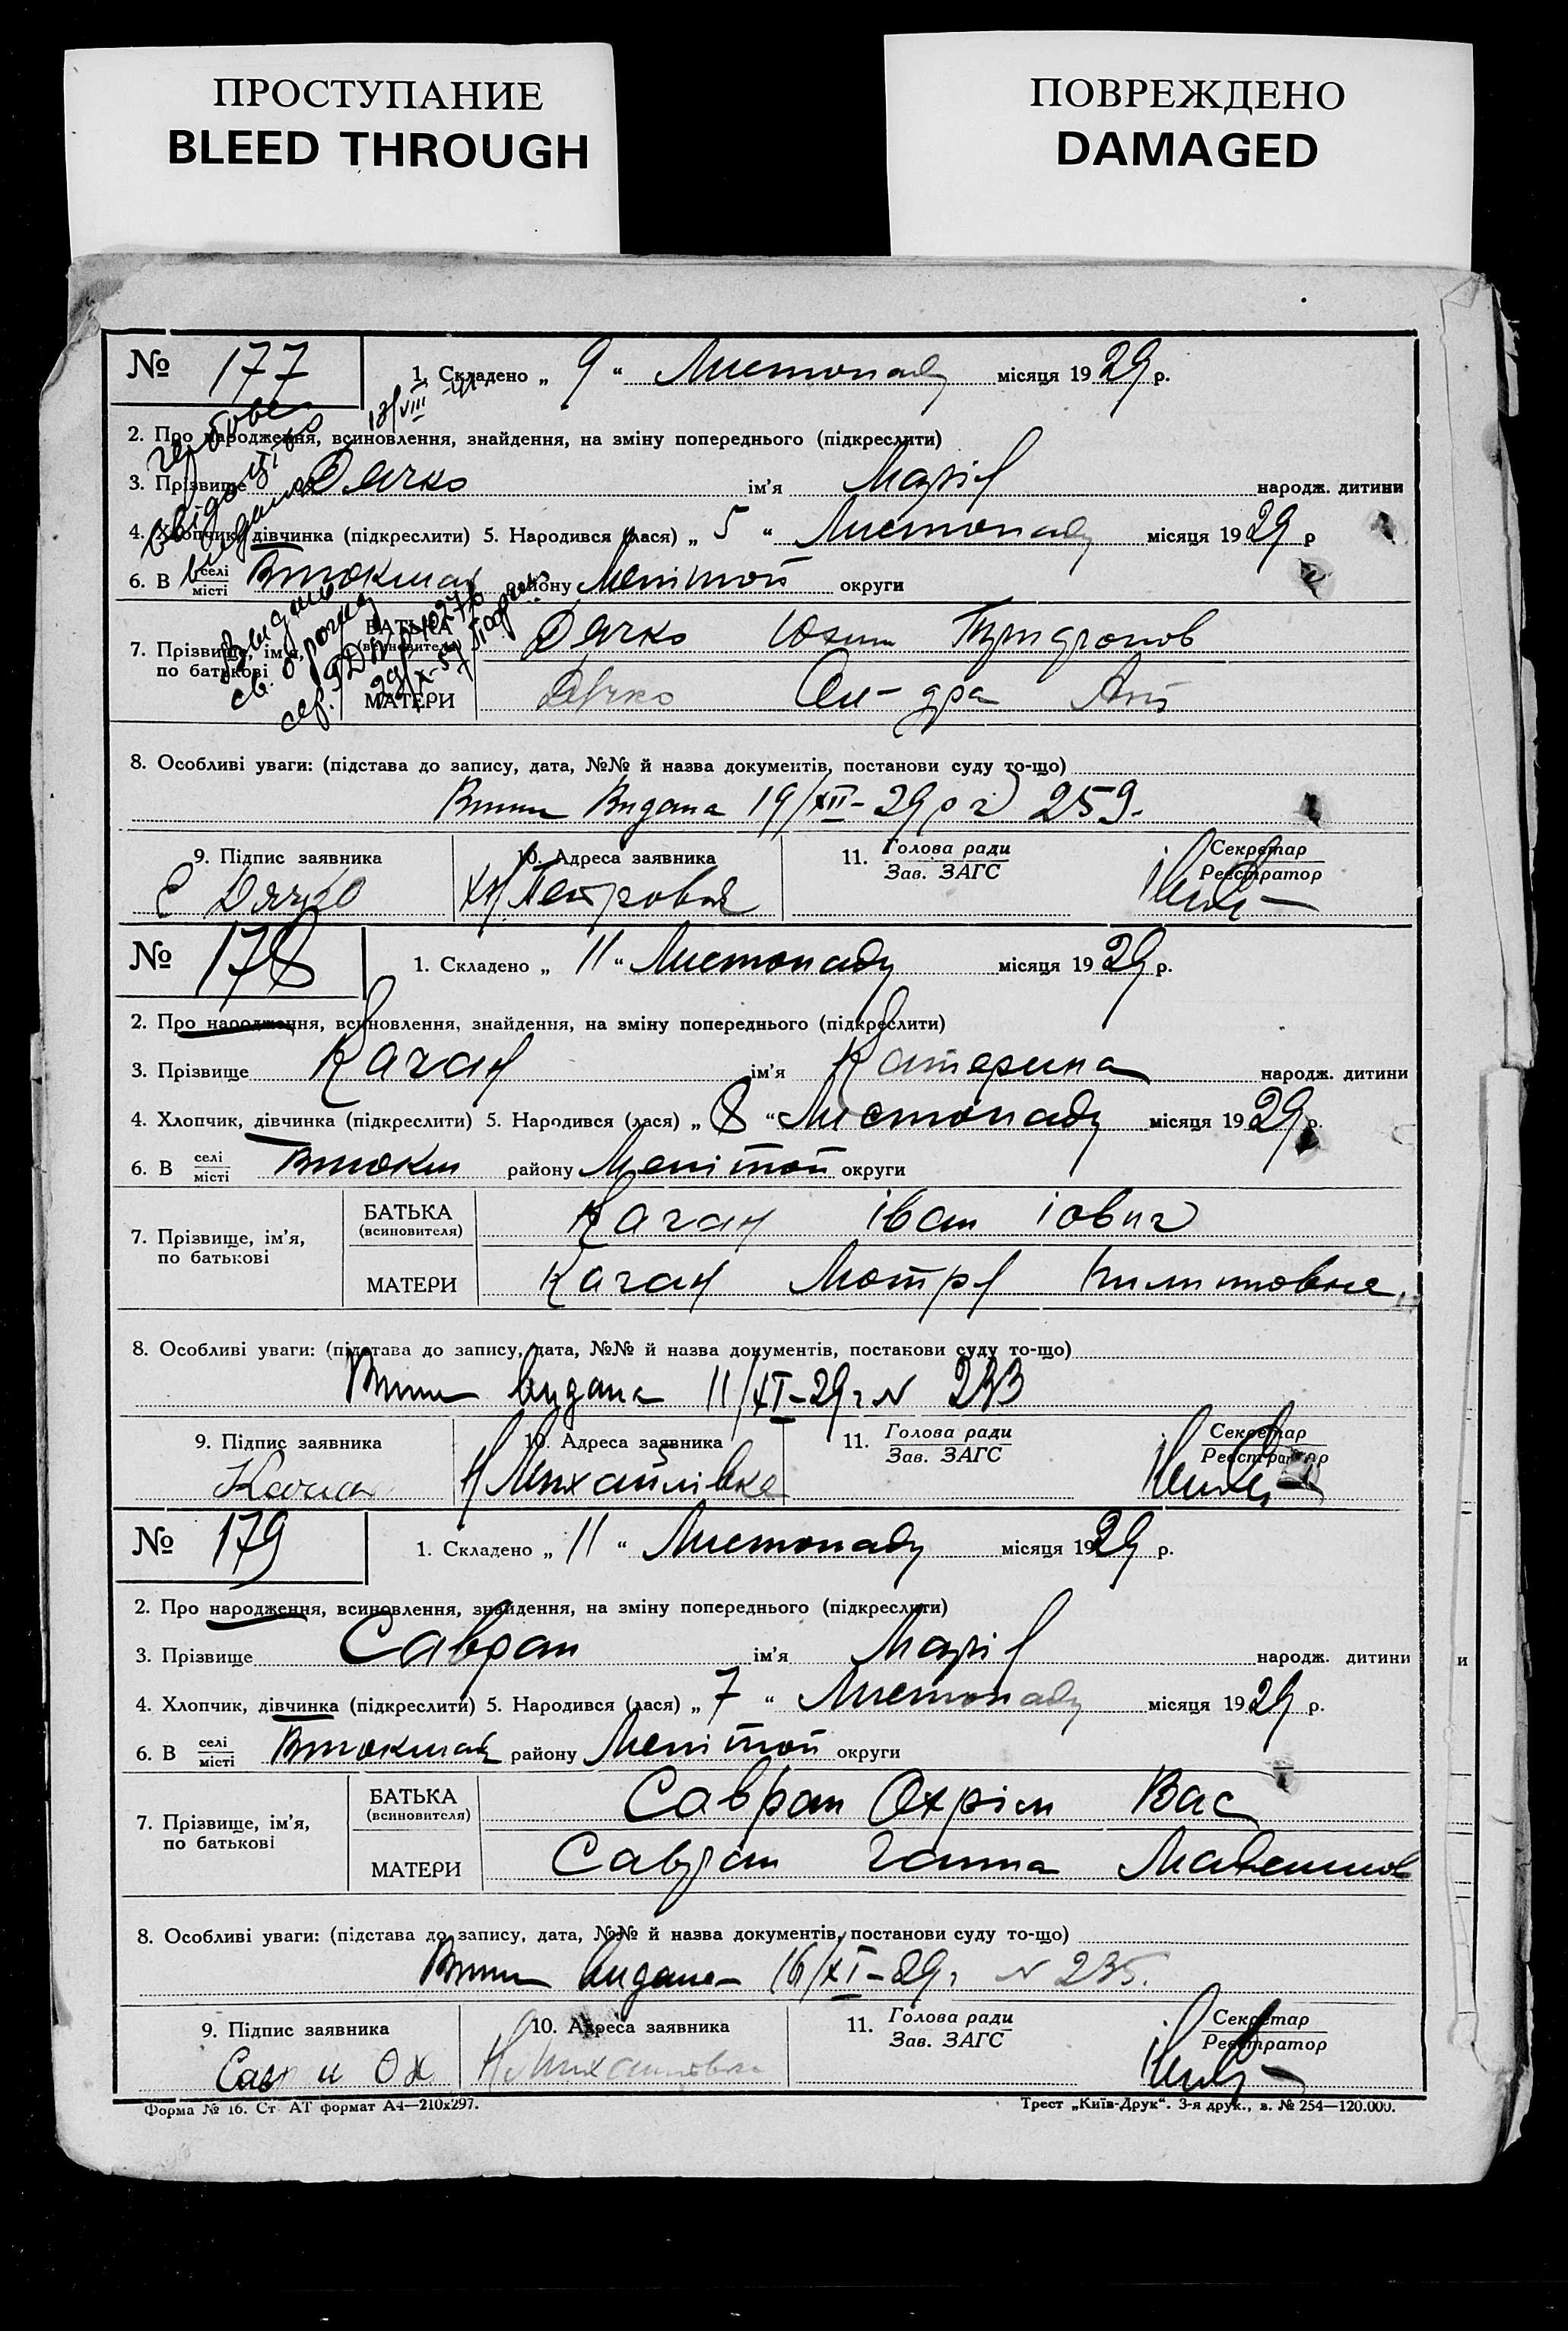 ПРОСТУПАНИЕ
BLEED THROUGH
ПОВРЕЖДЕНО
DAMAGED
№ 177
1. Складено „ 9 “ Листопаду місяця 1929 р.
2. Про народження, всиновлення, знайдення, на зміну попереднього (підкреслити)
3. Прізвище Дячко ім'я Марія народж. дитини
4. Хлопчик, дівчинка (підкреслити) 5. Народився (лася) „ 5 “ Листопаду місяця 1929 р
6. В селі місті Втокмак району Мелітоп округи
7. Прізвище, ім'я, по батькові
БАТЬКА (всиновителя) Дячко Юхим
МАТЕРИ Дячко Ол-дра Ант
8. Особливі уваги: (підстава до запису, дата, №№ й назва документів, постанови суду то-що)
Видана 19/XII-29 р 259.
9. Підпис заявника
Дячко
10. Адреса заявника
Петровка
11. Голова ради
Зав. ЗАГС
Секретар
Реєстратор
№ 178
1. Складено „ 11 “ Листопаду місяця 1929 р.
2. Про народження, всиновлення, знайдення, на зміну попереднього (підкреслити)
3. Прізвище Качан ім'я Катерина народж. дитини
4. Хлопчик, дівчинка (підкреслити) 5. Народився (лася) „ 8 “ Листопаду місяця 1929 р.
6. В селі місті Втокм району Мелітоп округи
7. Прізвище, ім'я, по батькові
БАТЬКА (всиновителя) Качан Іван Іович
МАТЕРИ Качан Мотря Пилиповна
8. Особливі уваги: (підстава до запису, дата, №№ й назва документів, постанови суду то-що)
видана 11/XI-29 г N 233
9. Підпис заявника
Качан
10. Адреса заявника
Н Михайлівка
11. Голова ради
Зав. ЗАГС
Секретар
Реєстратор
№ 179
1. Складено „ 11 “ Листопаду місяця 1929 р.
2. Про народження, всиновлення, знайдення, на зміну попереднього (підкреслити)
3. Прізвище Савран ім'я Марія народж. дитини
4. Хлопчик, дівчинка (підкреслити) 5. Народився (лася) „ 7 “ Листопаду місяця 1929 р.
6. В селі місті Втокмак району Мелітоп округи
7. Прізвище, ім'я, по батькові
БАТЬКА (всиновителя) Савран Охрім Вас
МАТЕРИ Савран Ганна
8. Особливі уваги: (підстава до запису, дата, №№ й назва документів, постанови суду то-що)
видана 16/XI-29 г N 235.
9. Підпис заявника
Ох
10. Адреса заявника
Н Михайловка
11. Голова ради
Зав. ЗАГС
Секретар
Реєстратор
Форма № 16. Ст АТ формат А4—210х297.
Трест „Київ-Друк“. 3-я друк., в. № 254—120.000.